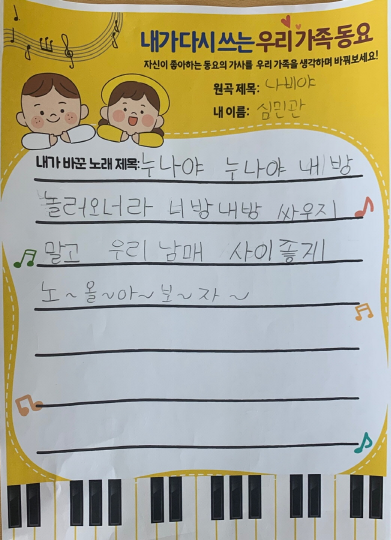 내가 다시 쓰는 우리 가족 동요
자신이 좋아하는 동요의 가사를 우리 가족을 생각하며 바꿔보세요!
원곡 제목: 나비야
내 이름: 심민관
내가 바꾼 노래 제목: 누나야 누나야 내 방
놀러오너라 너 방 내방 싸우지
말고 우리 남매 사이좋게
노~올~아~보~자~